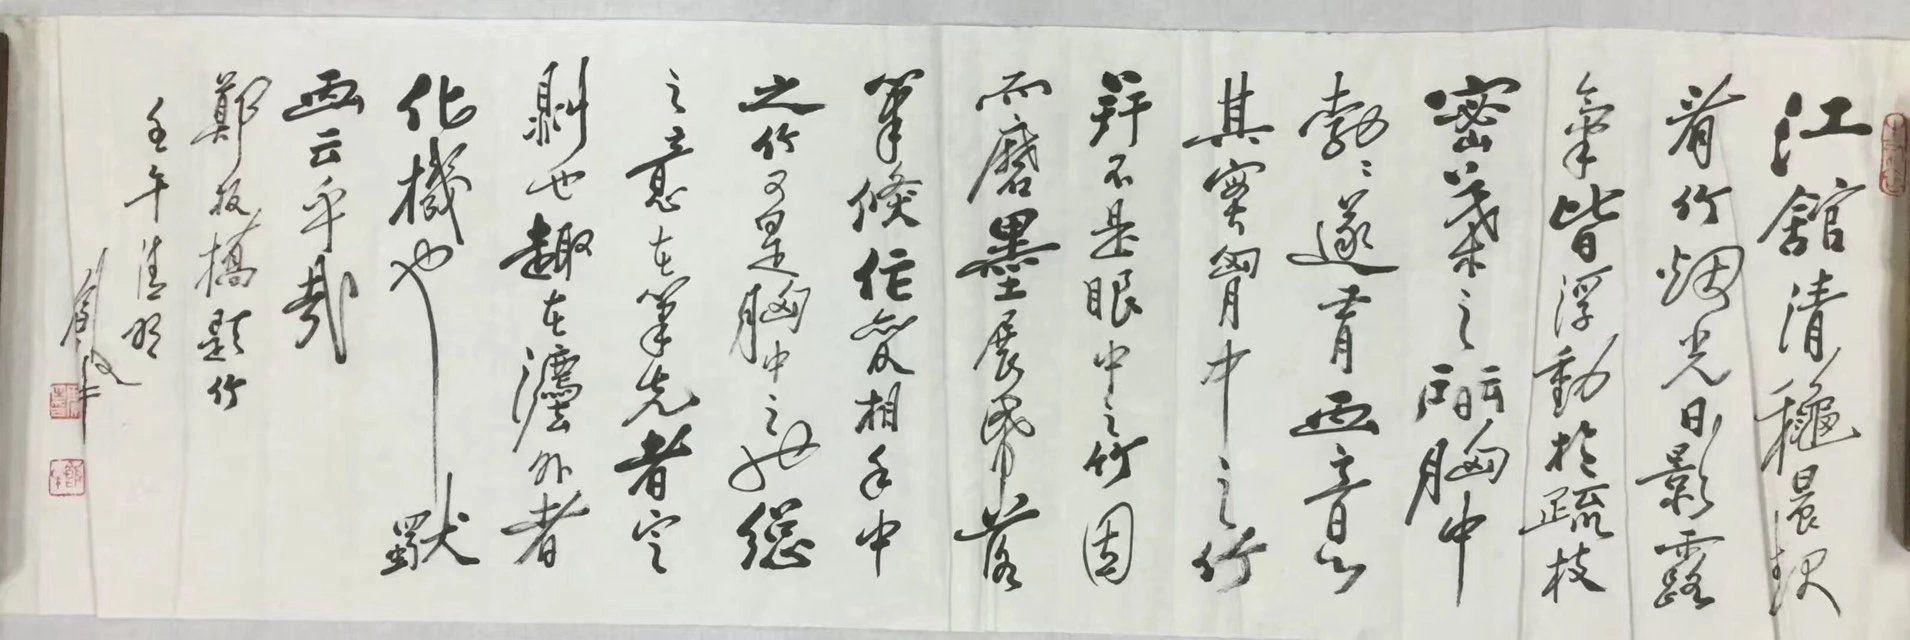 江舘清龝晨起
看竹烟光日影露
氣皆浮動於疏枝
密葉之間胸中
勃〻遂有画意
其實胷中之竹
并不是眼中之竹因
而磨墨展紙落
筆倏作變相手中
之竹又是胸中之也總
之意在筆先者定
則也趣在灋外者
化機也獨
画云乎哉
鄭板橋題竹
壬午清明